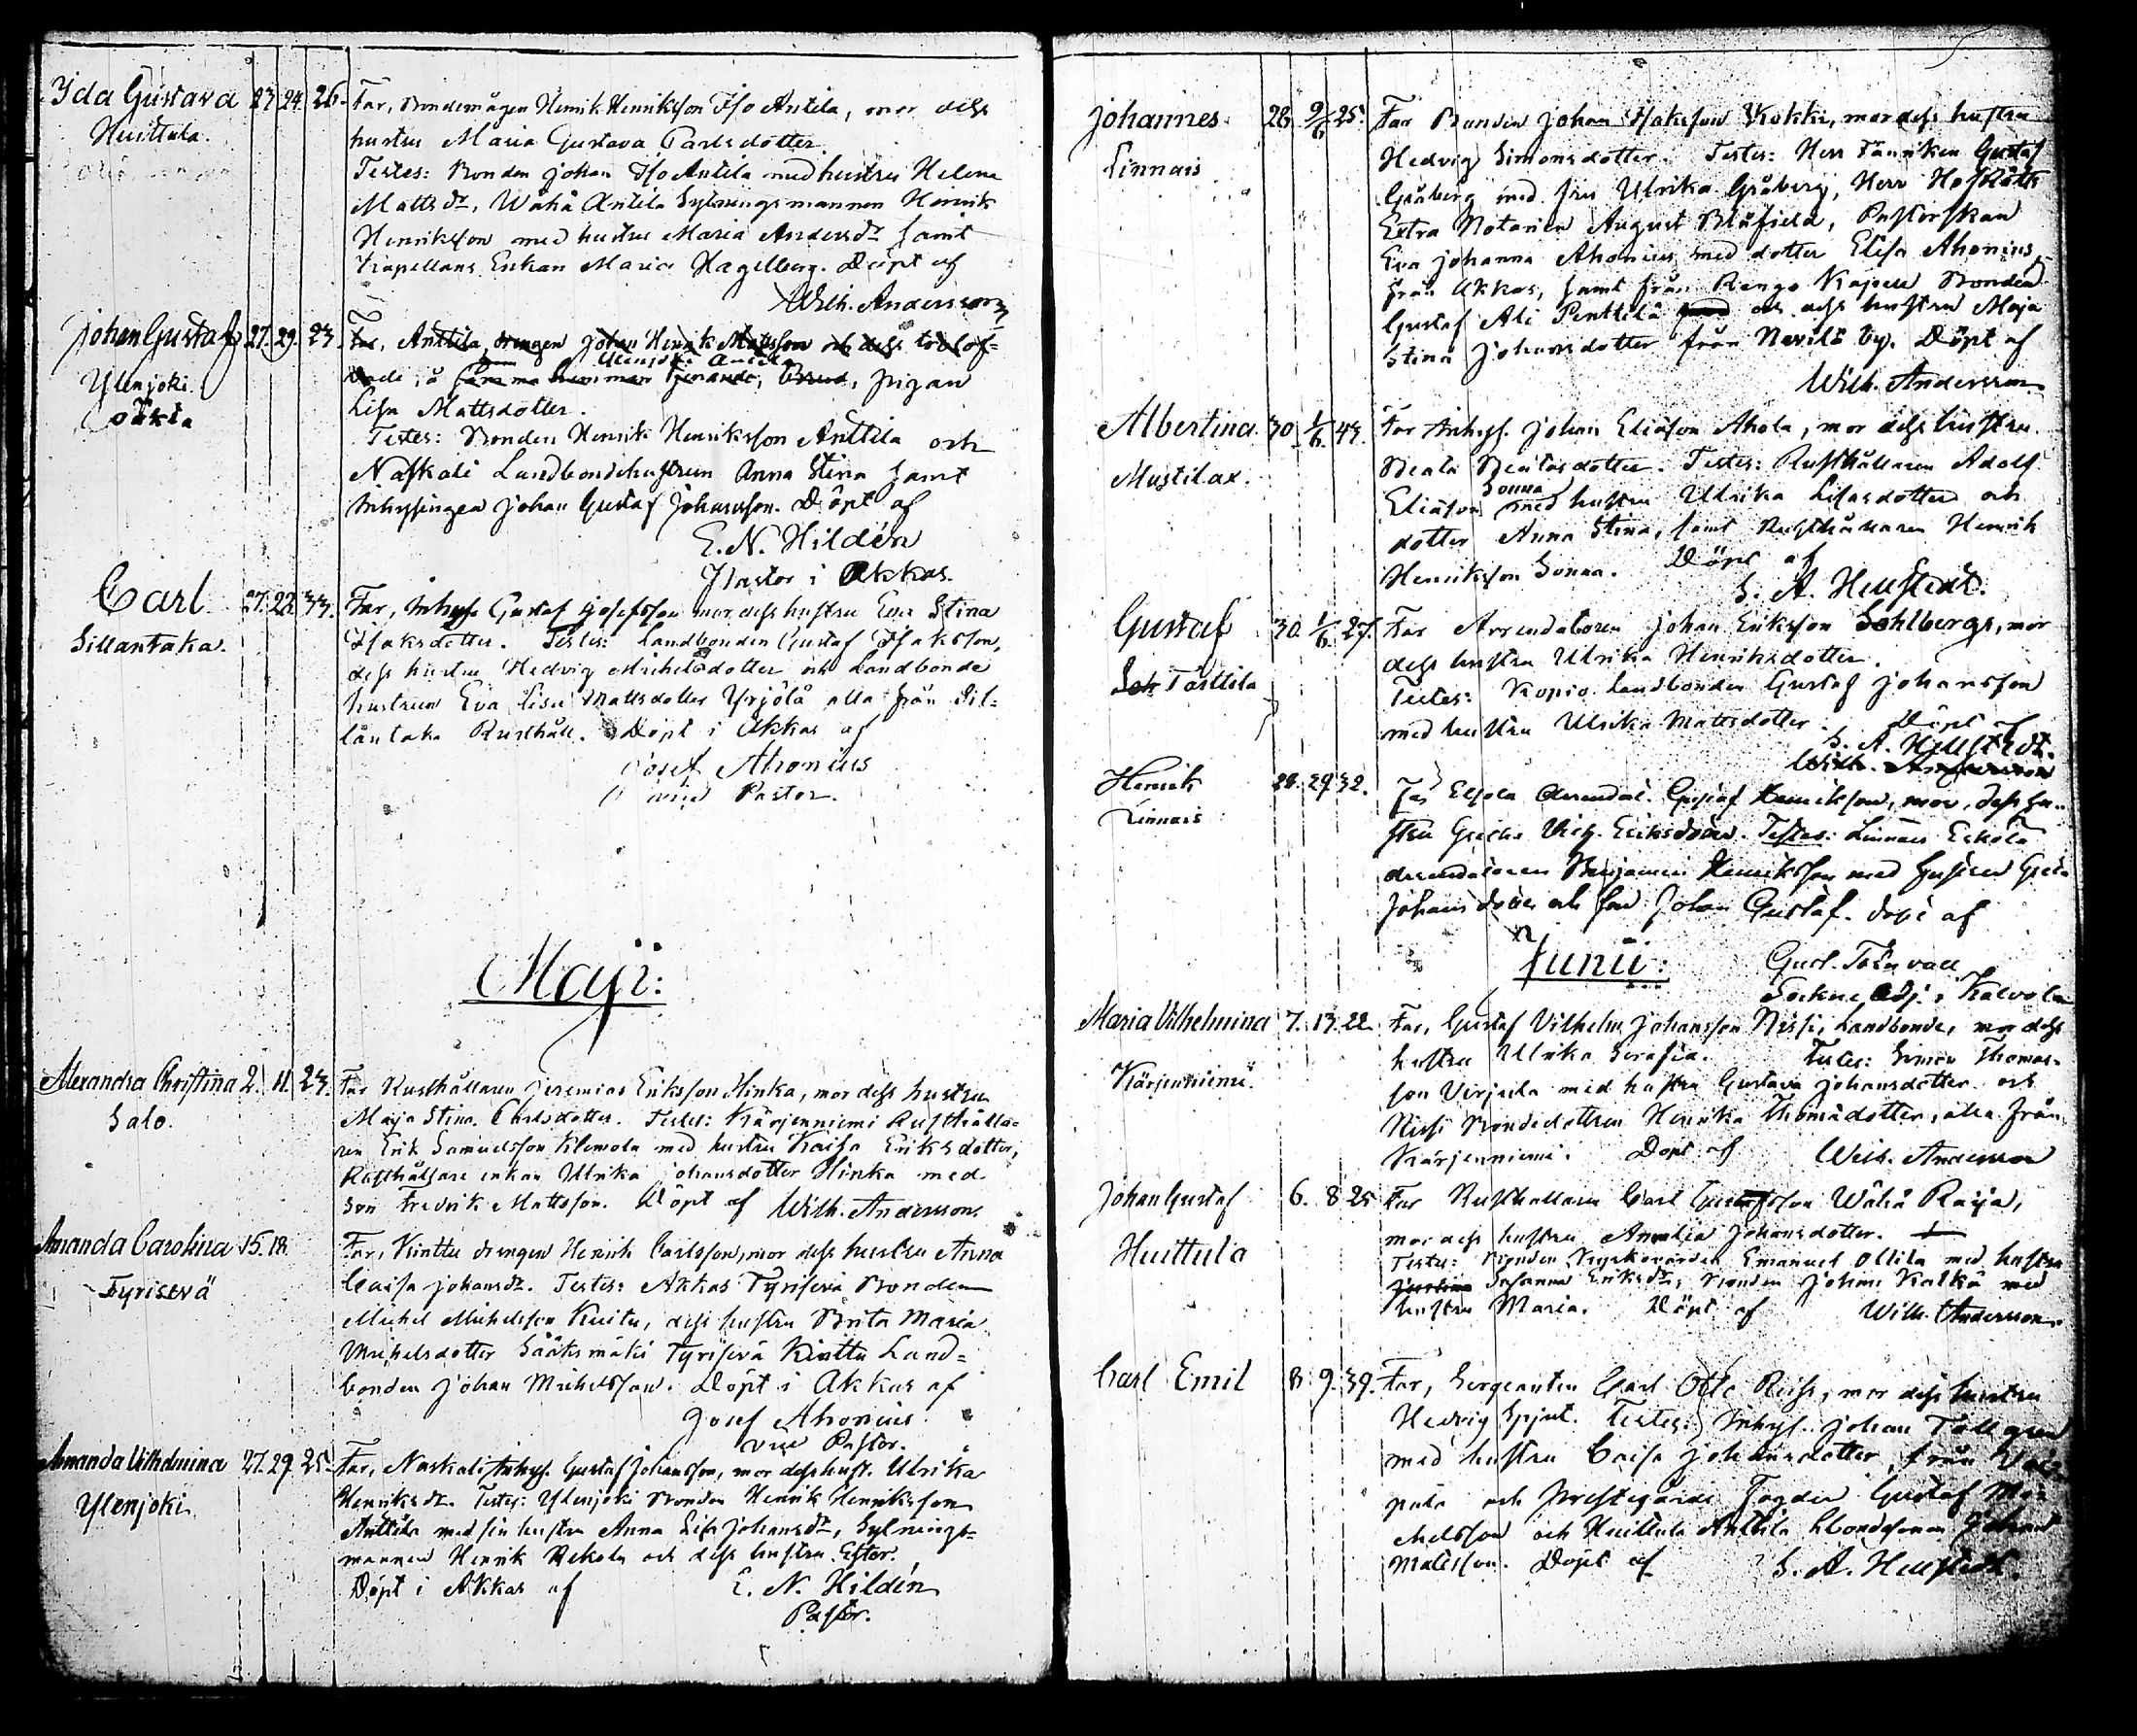 Ida Gustava 23. 24. 26. Far, Bondemågen Henrik Henriksson Iso Antila, mor dess
Huittula. hustru Maria Gustava Carlsdotter.
Testes: Bonden Johan Iso Antila med hustru Helena
Mattsdr, Wähä Antila Sexmannen Henrik
Henriksson med hustru Maria Andersdr samt
Kapellans Enkan Maria Hagelberg. Döpt af
Wilh. Andersson
Johan Gustaf 27. 29. 23. Far, Anttila drengen Johan Henrik Mattsson och dess trolof=
Ylenjoki. vade, å samma hemman tjenande, Brud, pigan
Oäkta Ylenjoki Antila
Lisa Mattsdotter.
Testes: Bonden Henrik Henriksson Anttila och
Naskali Landbondehustrun Anna Stina samt
Inhysingen Johan Gustaf Johansson. Döpt af
E. N. Hildén
Pastor i Akkas.
Carl 27. 28. 33. Far, Inhys. Gustaf Josefsson mor dess hustru Eva Stina
Sillantaka. Isaksdotter. Testes: Landbonden Gustaf Isaksson,
dess hustru Hedvig Michelsdotter och Landbonde
hustrun Eva Lisa Mattsdotter Yrjölä alla från Sil=
lantaka Rusthåll. Döpt i Akkas af
Josef Ahonius
vice Pastor.
Maji:
Alexandra Christina 2. 11. 23. Far Rusthållaren Jeremias Eriksson Hinka, mor dess hustru
Salo. Maja Stina Carlsdotter. Testes: Kärjenniemi Rusthålla=
ren Erik Samuelsson Klemola med hustru Kaisa Eriksdotter,
Rusthållare enkan Ulrika Johansdotter Hinka med
Son Fredrik Mattsson. Döpt af Wilh. Andersson.
Amanda Carolina 15. 18. Far, Kinttu drengen Henrik Carlsson, mor dess hustru Anna
Tyrisevä Caisa Johansdr. Testes: Akkas Tyrisevä Bonden
Michel Michelsson Kuitu, dess hustru Brita Maria
Michelsdotter Sääksmäki Tyrisevä Kinttu Land=
bonden Johan Michelsson. Döpt i Akkas af
Josef Ahonius
vice Pastor.
Amanda Vilhelmina 27. 29. 25. Far, Naskali Inhys. Gustaf Johansson, mor dess hust. Ulrika
Ylenjoki Henriksdr. Testes: Ylenjoki Bonden Henrik Henriksson
Anttila med sin hustru Anna Lisa Johansdr,
mannen Henrik Rekola och dess hustru Ester.
Döpt i Akkas af E. N. Hildén
Pastor.
Johannes 28. 9/6 25. Far Bonden Johan Isaksson Kokki, mor dess hustru
Linnais Hedvig Simonsdotter. Testes: Herr Fänriken Gustaf
Gråberg med fru Ulrika Gråberg, Herr HofRätts
Extra Notarien August Blåfield, Pastorskan
Eva Johanna Ahonius med dotter Elisa Ahonius
från Akkas, samt från Rengo Kapell Bonden
Gustaf Ali Penttilä och dess hustru Maja
Stina Johansdotter från Nevilä by. Döpt af
Wilh. Andersson
Albertina 30. 1/6. 43. Far Inhys. Johan Eliasson Ahola, mor dess hustru
Mustilax. Beata Beatasdotter. Testes: Rusthållaren Adolf
Eliasson Sonna med hustru Ulrika Lisasdotter och
dotter Anna Stina, samt Rusthållaren Henrik
Henriksson Sonna. Döpt af
S. A. Hellstedt.
Gustaf 30. 1/6. 27. Far Arrendatoren Johan Eriksson Sohlberg, mor
Tarttila dess hustru Ulrika Henriksdotter.
Testes: Kopio Landbonden Gustaf Johansson
med hustru Ulrika Mattsdotter. Döpt af
S. A. Hellstedt.
Wilh. Andersson
Henrik 28. 29. 32. Far Eskola Arrendat. Gustaf Henriksson, mor, dess hu=
Linnais stru Greta Eriksdotter. Testes: Linnais Eskola
Arrendatoren Benjamin Henriksson med hustru Greta
Johansdotter och son Johan Gustaf. döpt af
Junii:
Gust.
Sockne Adj. i Kalvola
Maria Vilhelmina 7. 13. 22. Far, Gustaf Vilhelm Johansson Nissi, Landbonde, mor dess
Kärjenniemi. hustru Ulrika Serafia. Testes: Simon Thomas=
son Virjula med hustru Gustava Johansdotter och
Nissi Bondedottren Henrika Thomasdotter, alla från
Kärjenniemi. Döpt af Wilh. Andersson
Johan Gustaf 6. 8. 25. Far Rusthållaren Carl Gustafsson Wähä Raija,
Huittula mor dess hustru Amalia Johansdotter.
Testes: Bonden Kyrkovärden Emanuel Ollila med hustru
Justina Susanna Eriksdr, Bonden Johan Kalkå med
hustru Maria. Döpt af Wilh. Andersson.
Carl Emil 8. 9. 39. Far, Sergeanten Carl Otto Reiss, mor dess hustru
Hedvig Spjut. Testes: Inhys. Johan Tallgren
med hustru Caisa Johansdotter från
och Prestgårds Fogden Gustaf Mi=
chelsson och Huittula Anttila Bondesonen Johan
Mattsson. Döpt af S. A. Hellstedt.